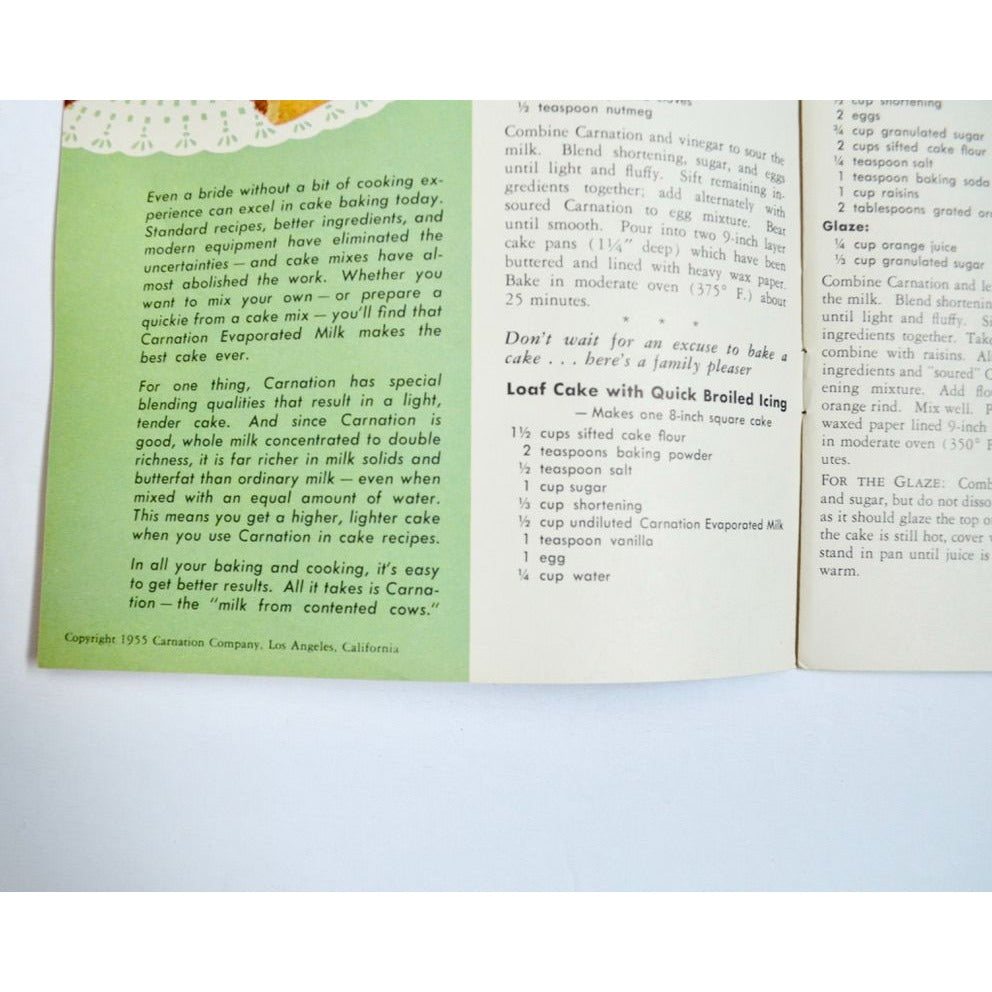 Even a bride without a bit of cooking ex-
perience can excel in cake baking today.
Standard recipes, better ingredients, and
modern equipment have eliminated the
uncertainties — and cake mixes have al-
most abolished the work. Whether you
want to mix your own — or prepare a
quickie from a cake mix — you'll find that
Carnation Evaporated Milk makes the
best cake ever.
For one thing, Carnation has special
blending qualities that result in a light,
tender cake. And since Carnation is
good, whole milk concentrated to double
richness, it is far richer in milk solids and
butterfat than ordinary milk — even when
mixed with an equal amount of water.
This means you get a higher, lighter cake
when you use Carnation in cake recipes.
In all your baking and cooking, it's easy
to get better results. All it takes is Carna-
tion — the "milk from contented cows."
Copyright 1955 Carnation Company, Los Angeles, California
½ teaspoon nutmeg
Combine Carnation and vinegar to sour the
milk. Blend shortening, sugar, and eggs
until light and fluffy. Sift remaining in-
gredients together; add alternately with
soured Carnation to egg mixture. Beat
until smooth. Pour into two 9-inch layer
cake pans (1¼" deep) which have been
buttered and lined with heavy wax paper.
Bake in moderate oven (375° F.) about
25 minutes.
* * *
Don't wait for an excuse to bake a
cake . . . here's a family pleaser
Loaf Cake with Quick Broiled Icing
— Makes one 8-inch square cake
1½ cups sifted cake flour
2 teaspoons baking powder
½ teaspoon salt
1 cup sugar
⅓ cup shortening
½ cup undiluted Carnation Evaporated Milk
1 teaspoon vanilla
1 egg
¼ cup water
cup shortening
2 eggs
¾ cup granulated sugar
2 cups sifted cake flour
¼ teaspoon salt
1 teaspoon baking soda
1 cup raisins
2 tablespoons grated
Glaze:
¼ cup orange juice
⅓ cup granulated sugar
Combine Carnation and
the milk. Blend
until light and fluffy.
ingredients together.
combine with raisins.
ingredients and "soured"
ening mixture. Add
orange rind. Mix well.
waxed paper lined 9-inch
in moderate oven (350°
utes.
FOR THE GLAZE:
and sugar, but do not
as it should glaze the top
the cake is still hot, cover
stand in pan until juice is
warm.